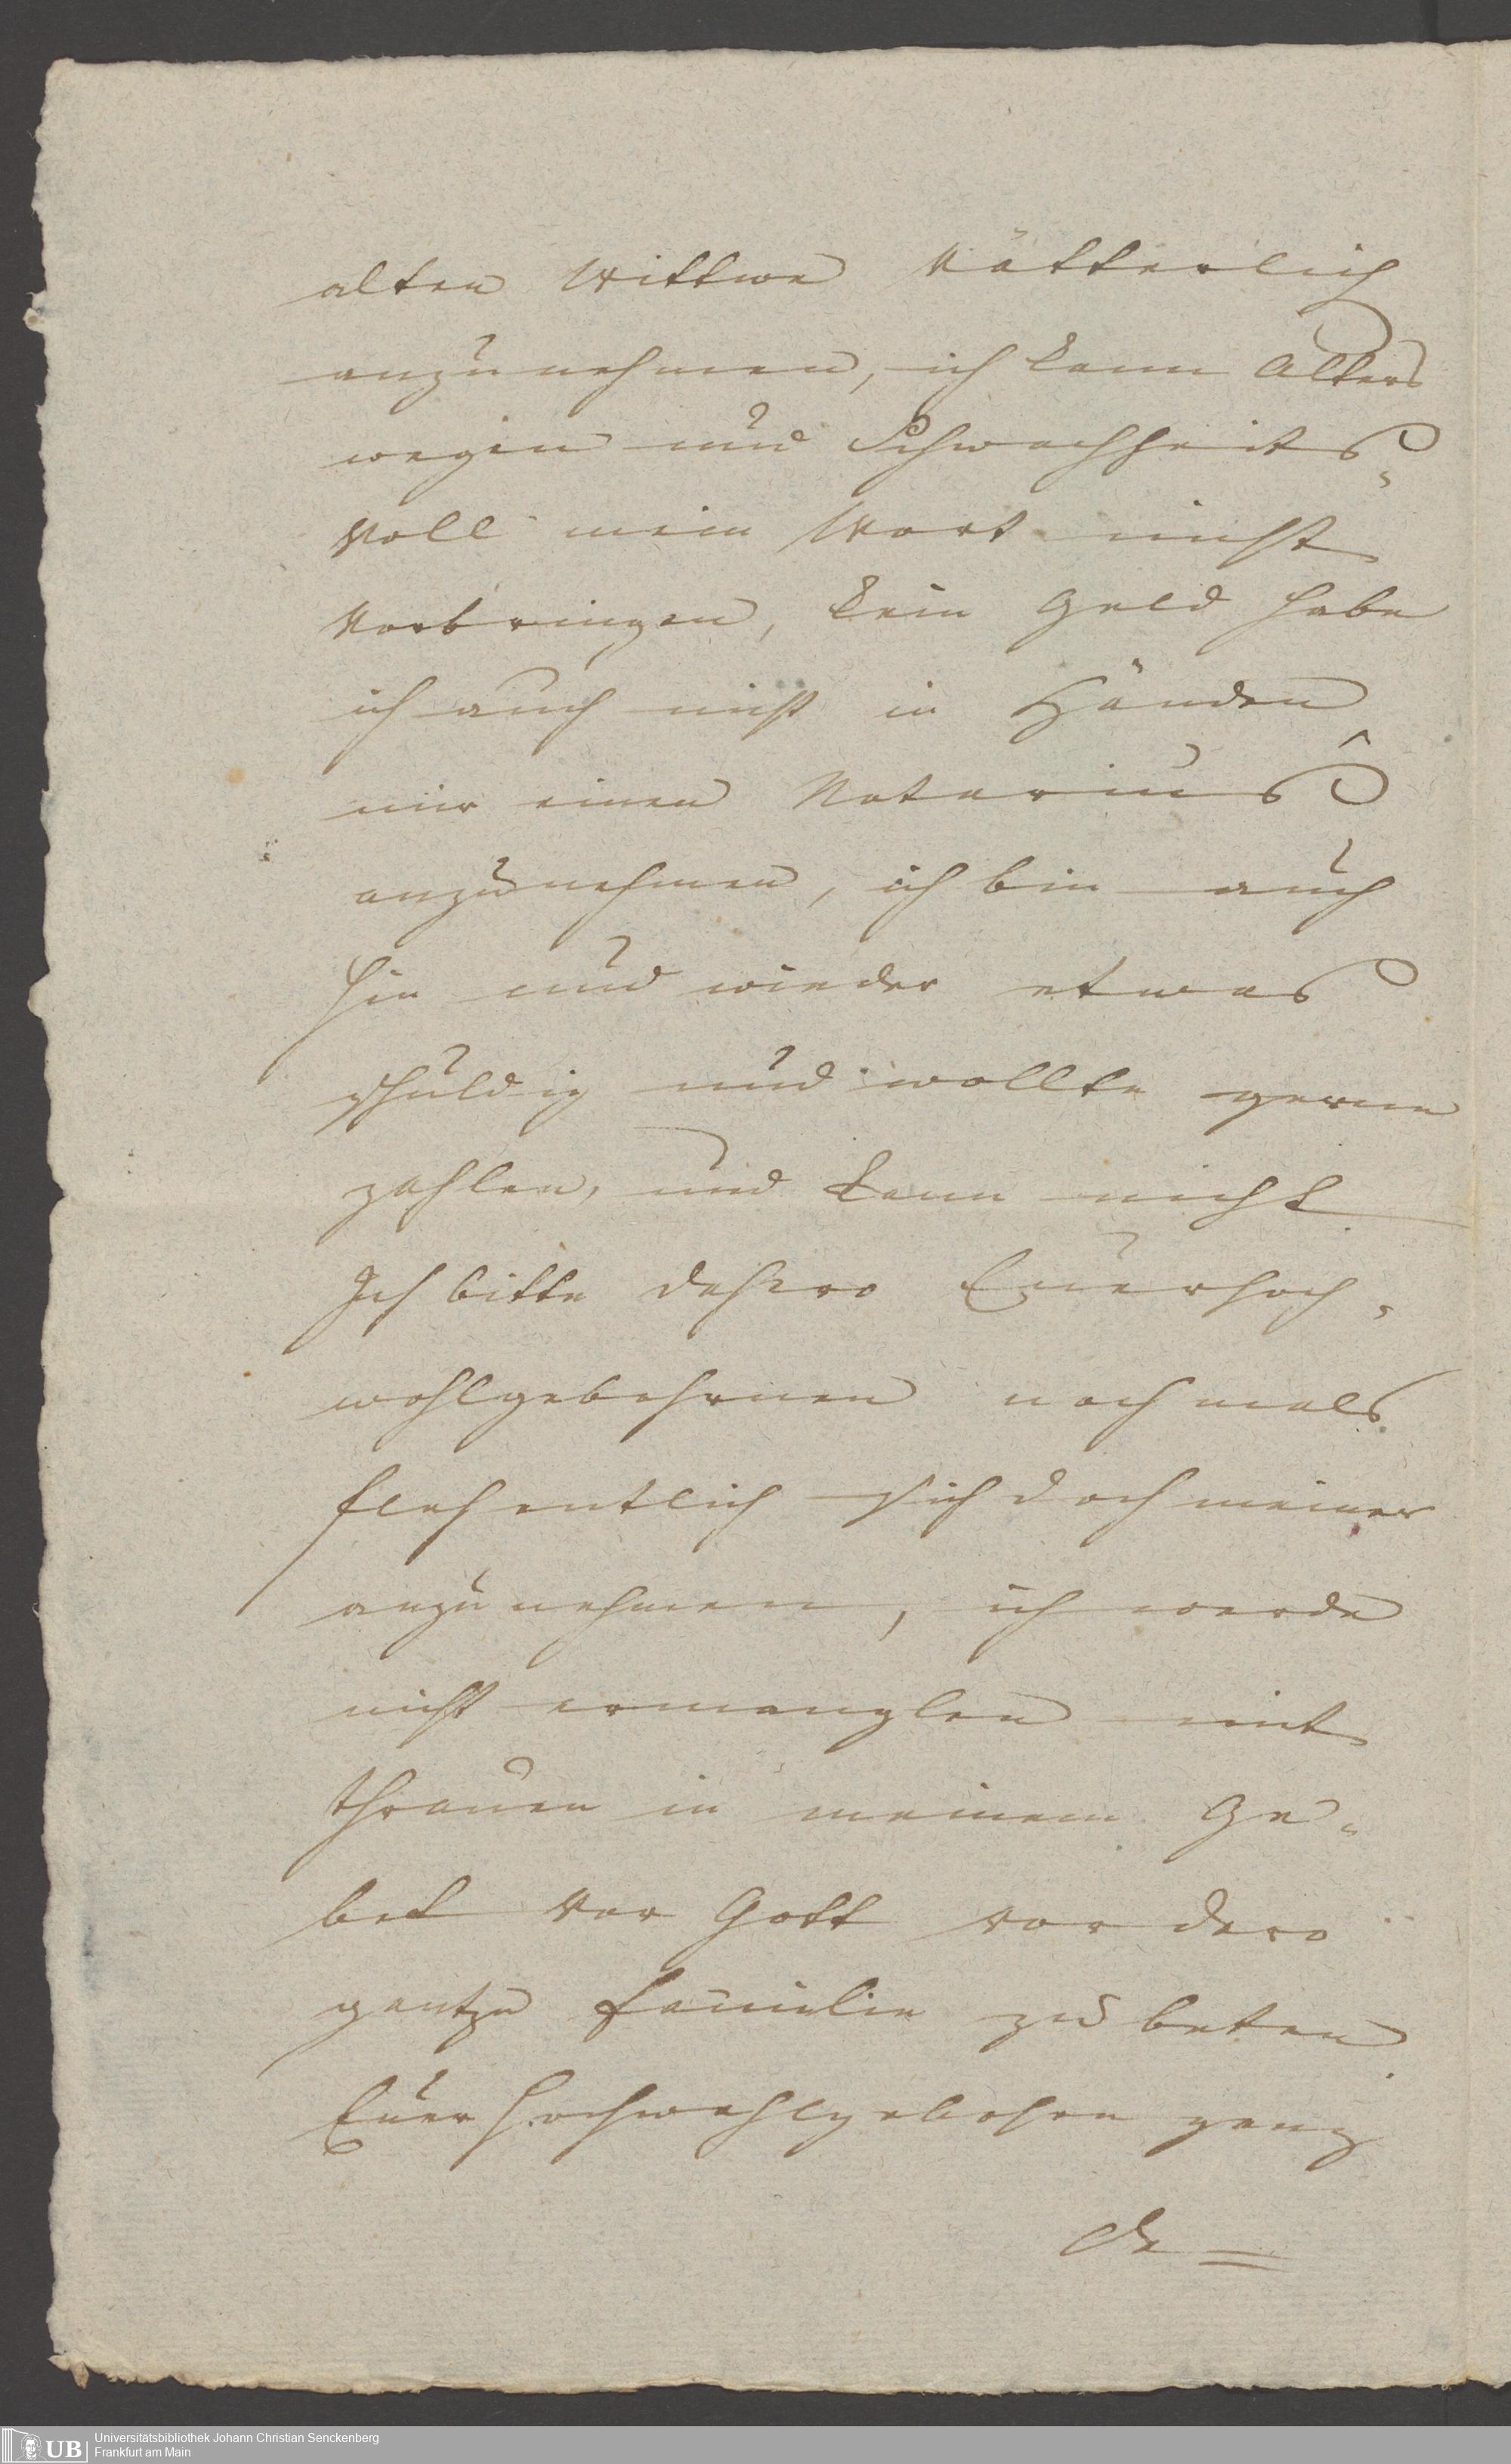 alten Wittwe Vätterlich
anzunehmen, ich kann Alters
wegen und Schwachheits-
voll mein Wort nicht
Vorbringen, kein Geld habe
ich auch nicht in Händen
mir einen Notarius
anzunehmen, ich bin auch
hin und wieder etwas
schuldig und wollte gerne
zahlen, und kann nicht
Ich bitte dahero Euerhoch-
wohlgebohrnen nochmals
flehentlich sich doch meiner
anzunehmen, ich werde
nicht ermanglen mit
thränen in meinem Ge-
bet vor Gott vor dero
gantze familie zu beten
Euer Hochwohlgebohrn ganz
de=
UB Universitätsbibliothek Johann Christian Senckenberg
Frankfurt am Main